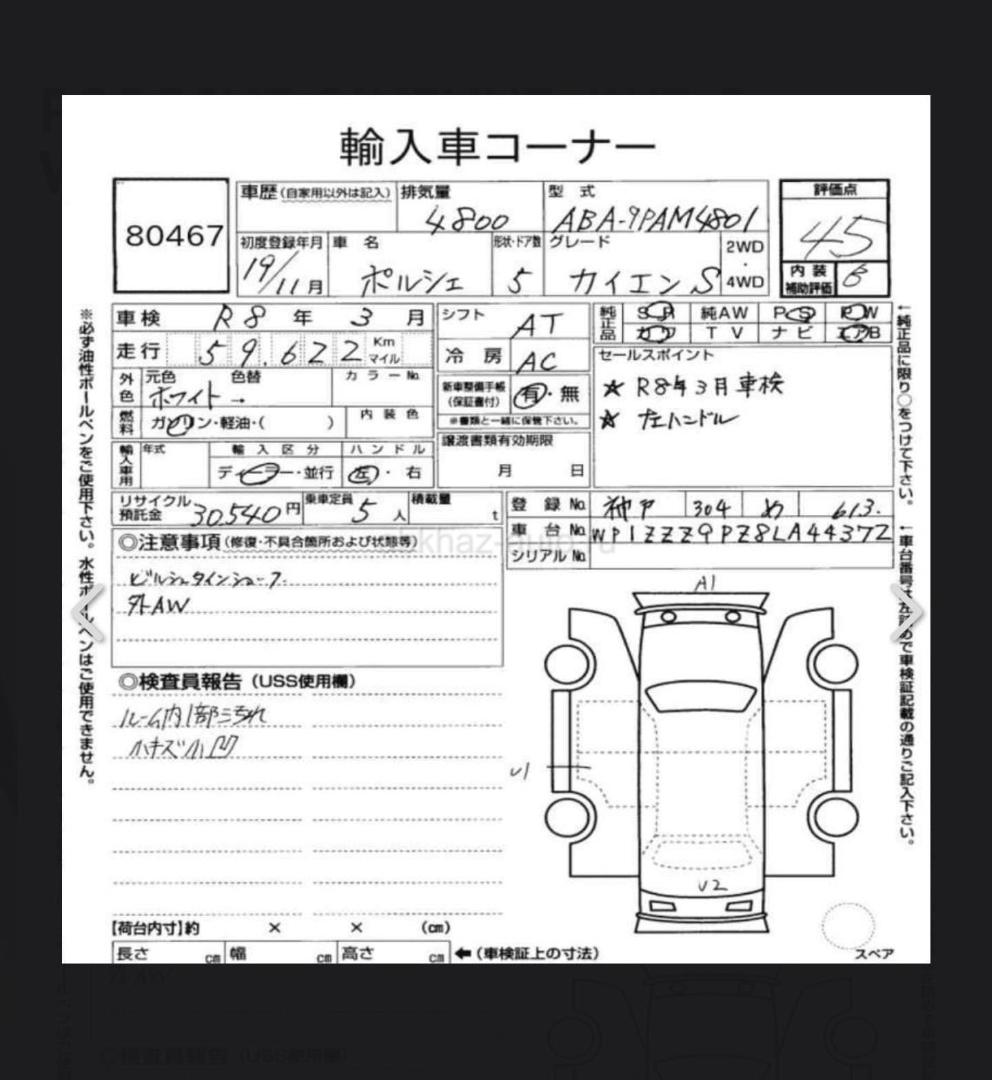 輸入車コーナー
80467
車歴(自家用以外は記入)
排気量
4800
型 式
ABA-9PAM4801
評価点
45
初度登録年月
19/11月
車 名
ポルシェ
形状・ドア数
5
グレード
カイエン S
2WD
・
4WD
内 装
補助評価
B
車検 R8 年 3 月
シフト
AT
純正品
SR 純AW PS PW
カワ TV ナビ エアB
走行 59,622 Km マイル
冷 房
AC
セールスポイント
★ R8年3月車検
★ 左ハンドル
外色
元色 色替
ホワイト→
カラーNo.
新車整備手帳
(保証書付)
有・無
※書類と一緒に保管下さい。
燃料
ガソリン・軽油・( )
内 装 色
譲渡書類有効期限
月 日
輸入車用
年式
輸 入 区 分
ディーラー・並行
ハ ン ド ル
左・右
リサイクル
預託金
30,540円
乗車定員
5人
積載量
t
登 録 No. 神戸 304 め 613.
車 台 No. WP1ZZZ9PZ8LA44372
シリアル No.
◎注意事項(修復・不具合箇所および状態等)
外AW
◎検査員報告(USS使用欄)
ルーム内1部ヨゴれ
小キズ小凹
A1
U1
U2
スペア
【荷台内寸】約 × × (cm)
長さ cm 幅 cm 高さ cm ←(車検証上の寸法)
※必ず油性ボールペンをご使用下さい。水性ボールペンはご使用できません。
←純正品に限り○をつけて下さい。